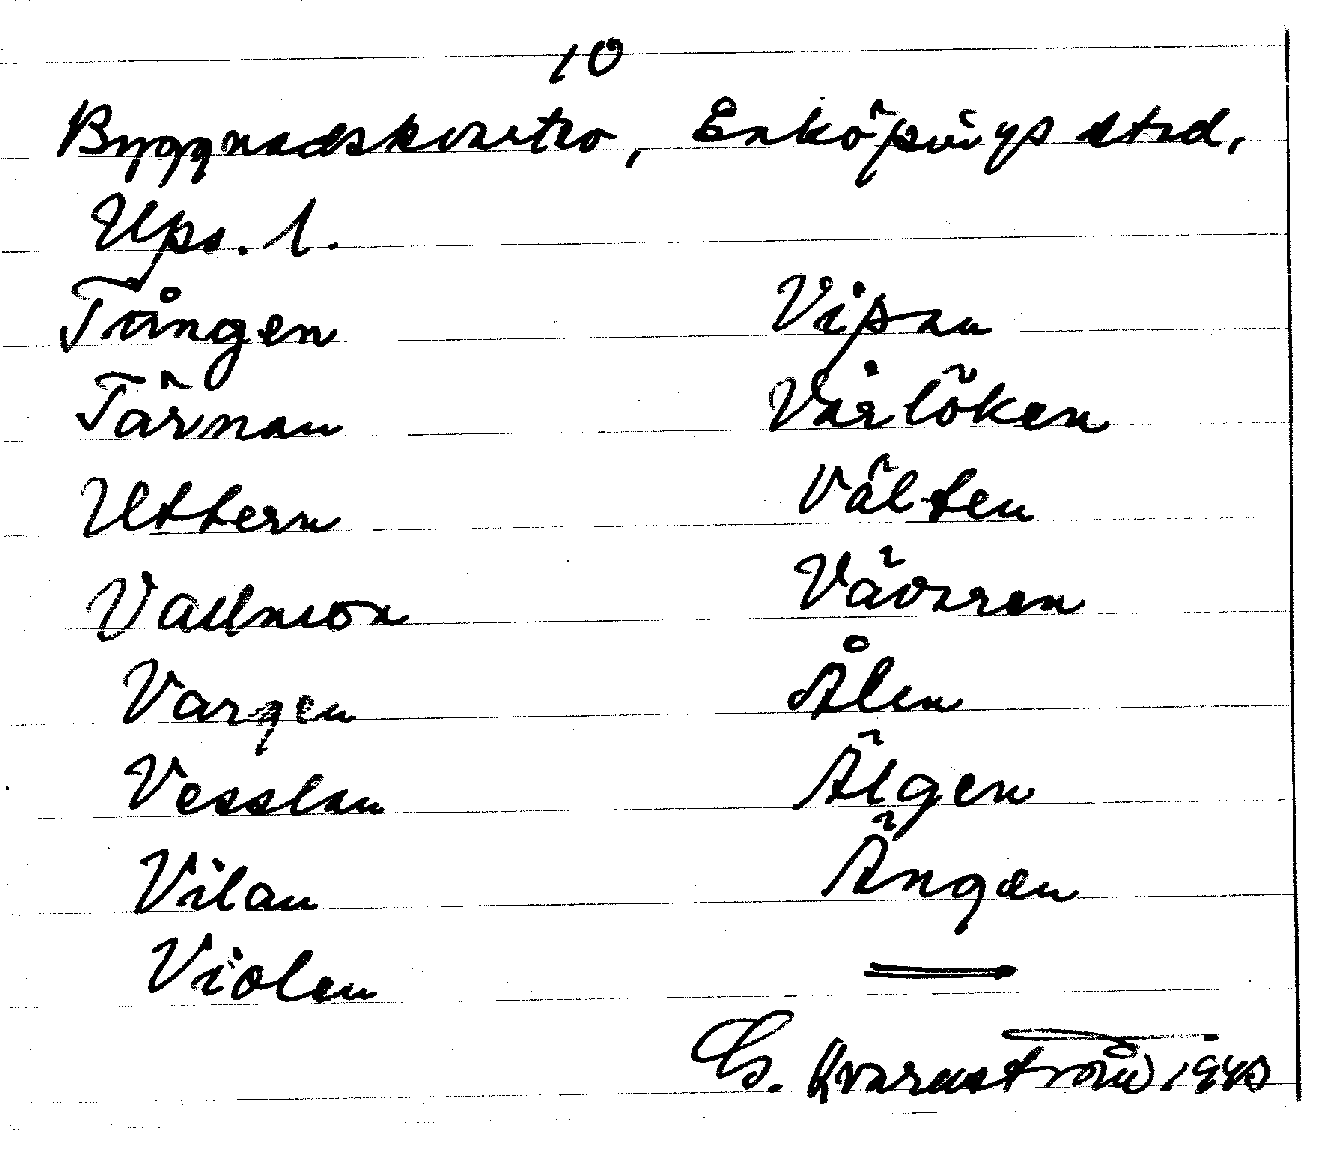 10
Byggnadskontro, Enköpings stad,
Ups. l.
Tången
Tärnan
Uttern
Vallmon
Vargen
Vesslan
Vilan
Violen
Vipan
Vårlöken
Välten
Vävaren
Ålen
Älgen
Ängen
G. Kvarnström 1940